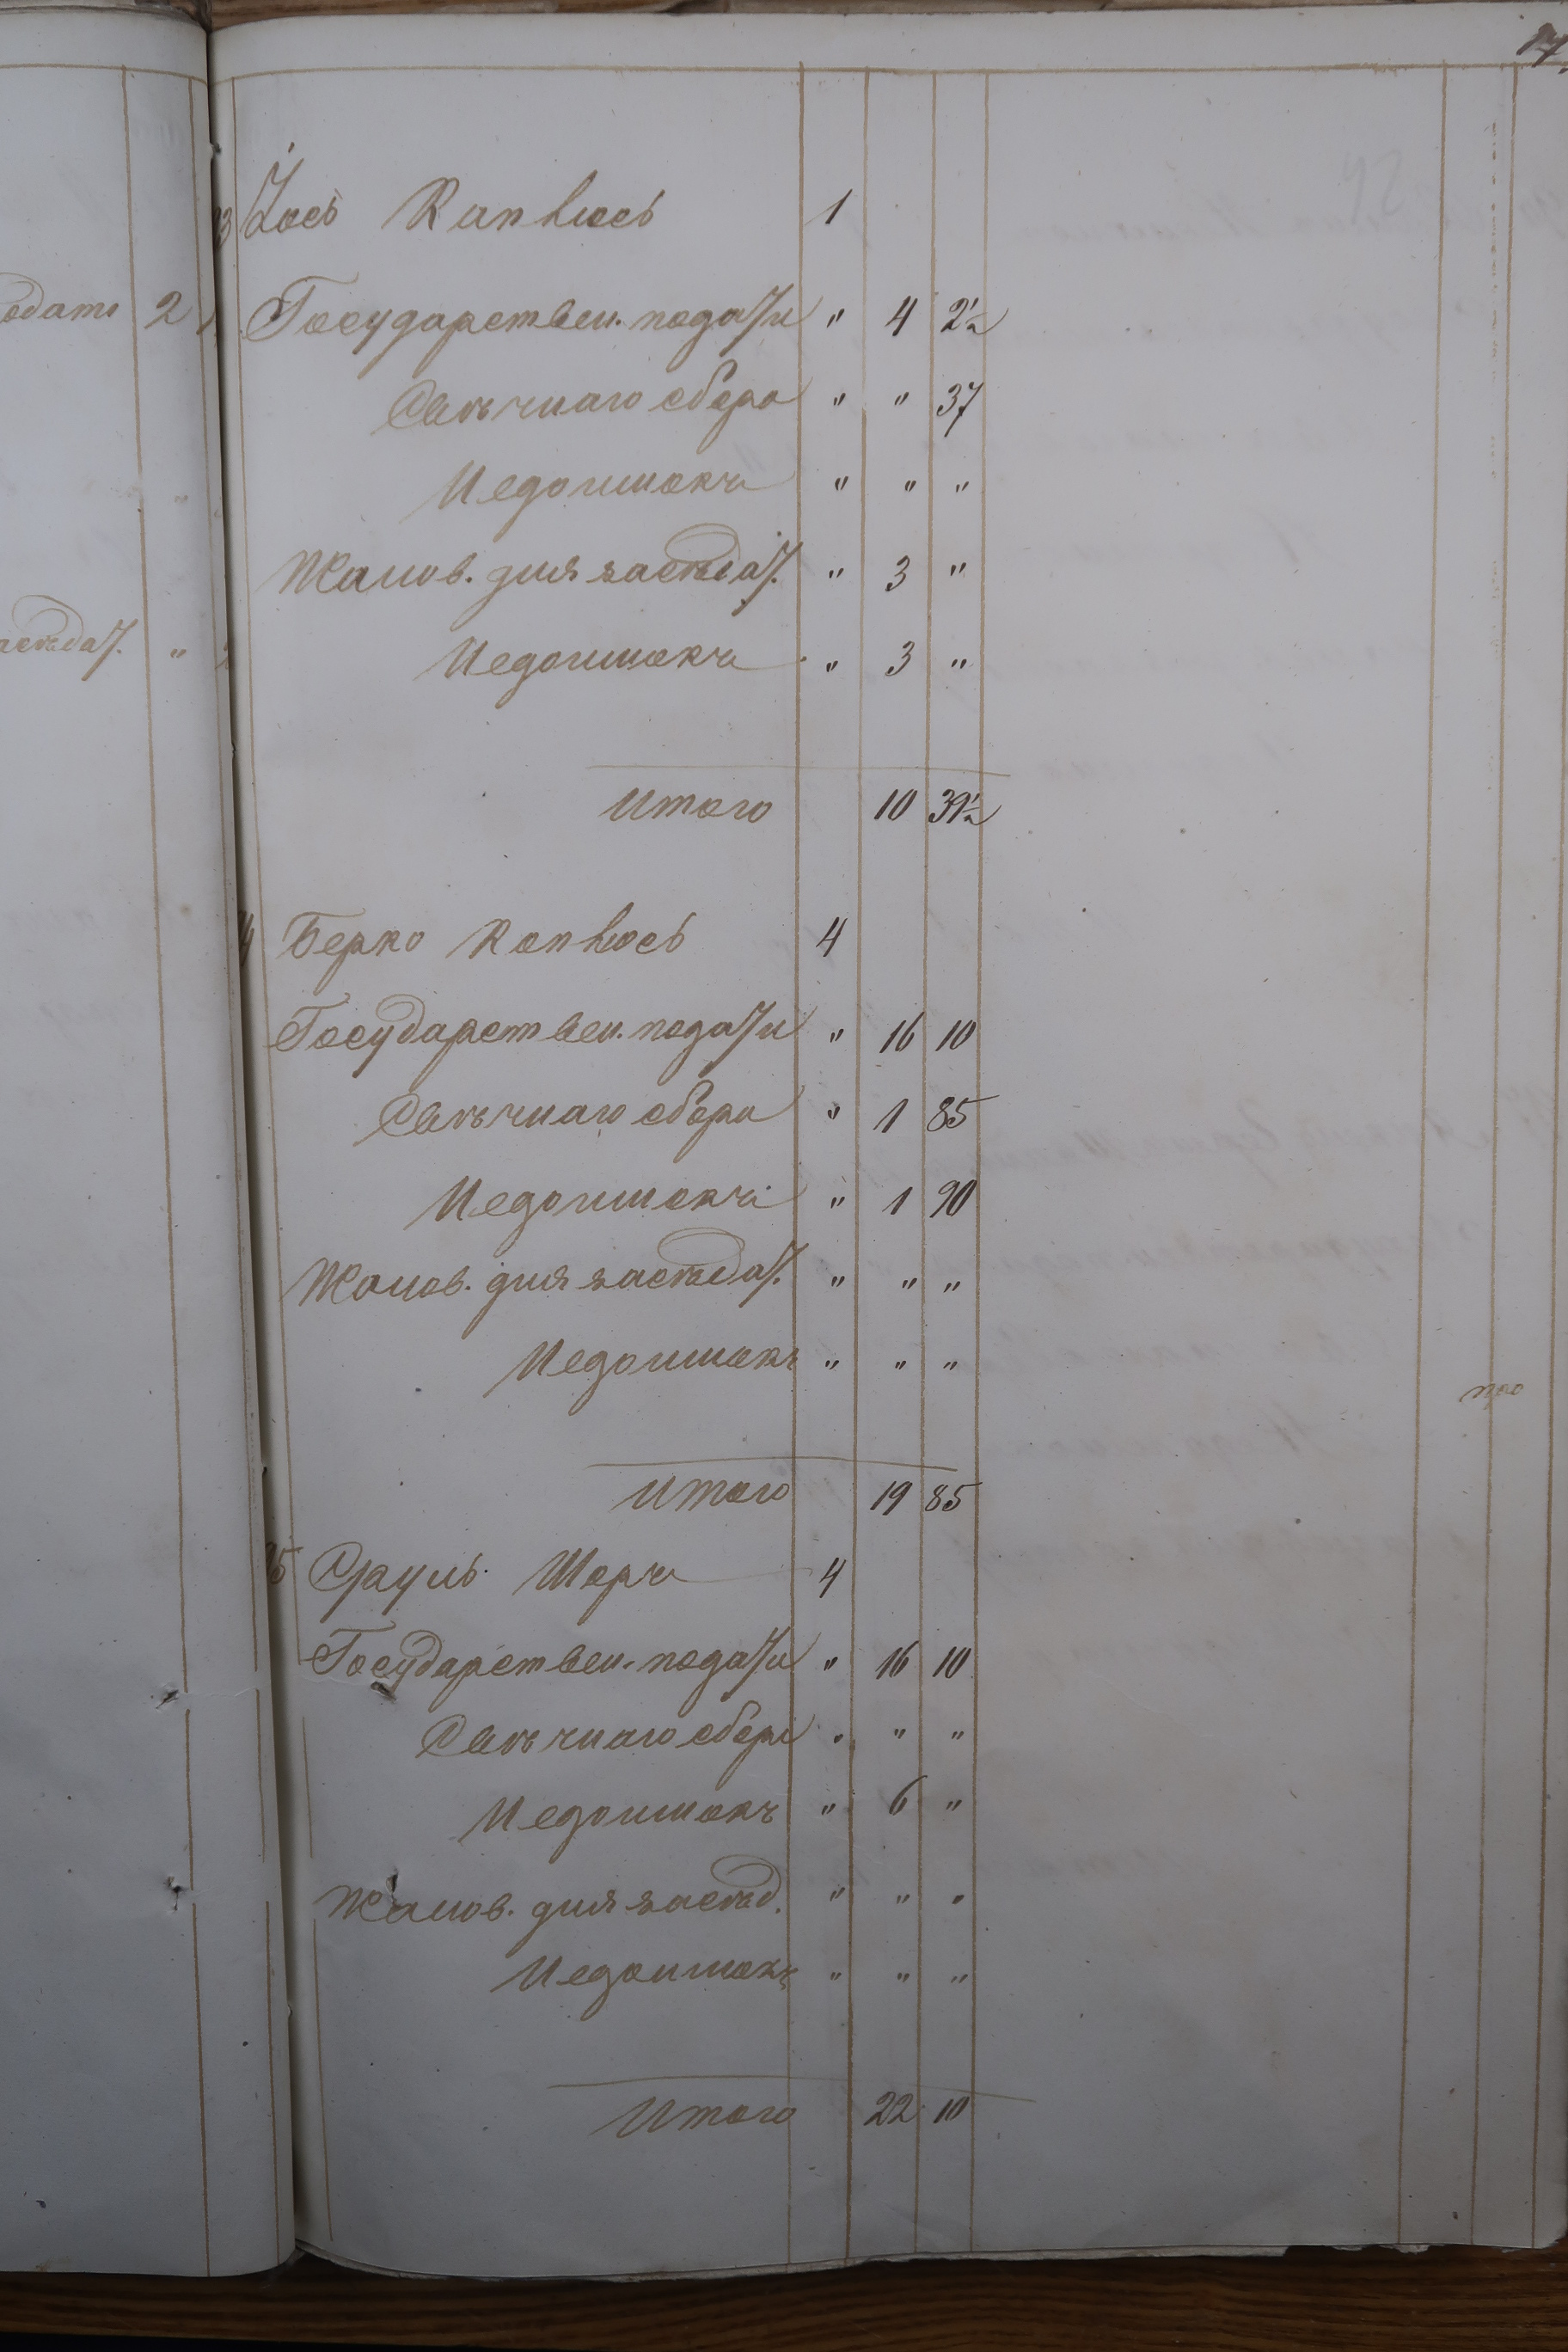 17.
одать 2
аседат. "
3 Іось Капнюсь 1
Государствен. подати " 4 2½
Свѣчнаго сбора " " 37
Недоимокъ " " "
Жалов. для заседат. " 3 "
Недоимокъ " 3 "
Итого 10 39½
4 Берко Капнюсь 4
Государствен. подати " 16 10
Свѣчнаго сбора " 1 85
Недоимокъ " 1 90
Жалов. для заседат. " " "
Недоимокъ " " "
Итого 19 85
5 Сруль Шора 4
Государствен. подати " 16 10
Свѣчнаго сбора " " "
Недоимокъ " 6 "
Жалов. для засед. " " "
Недоимокъ " " "
Итого 22 10